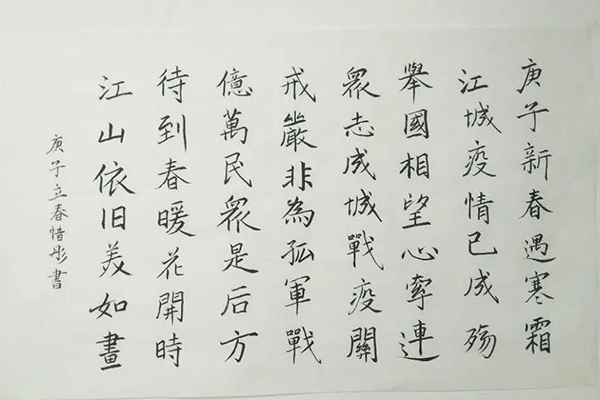 庚子新春遇寒霜
江城疫情已成殇
舉國相望心牽連
眾志成城戰疫關
戒嚴非為孤軍戰
億萬民眾是后方
待到春暖花開時
江山依旧美如畫
庚子立春惜彤書